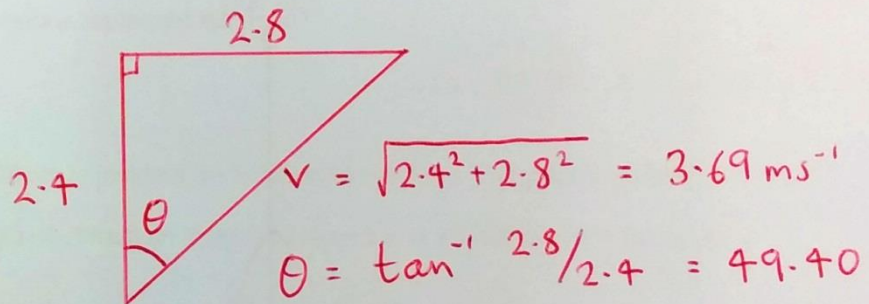 2.8
2.4
θ
v = √2.4² + 2.8² = 3.69 ms⁻¹
θ = tan⁻¹ 2.8/2.4 = 49.40